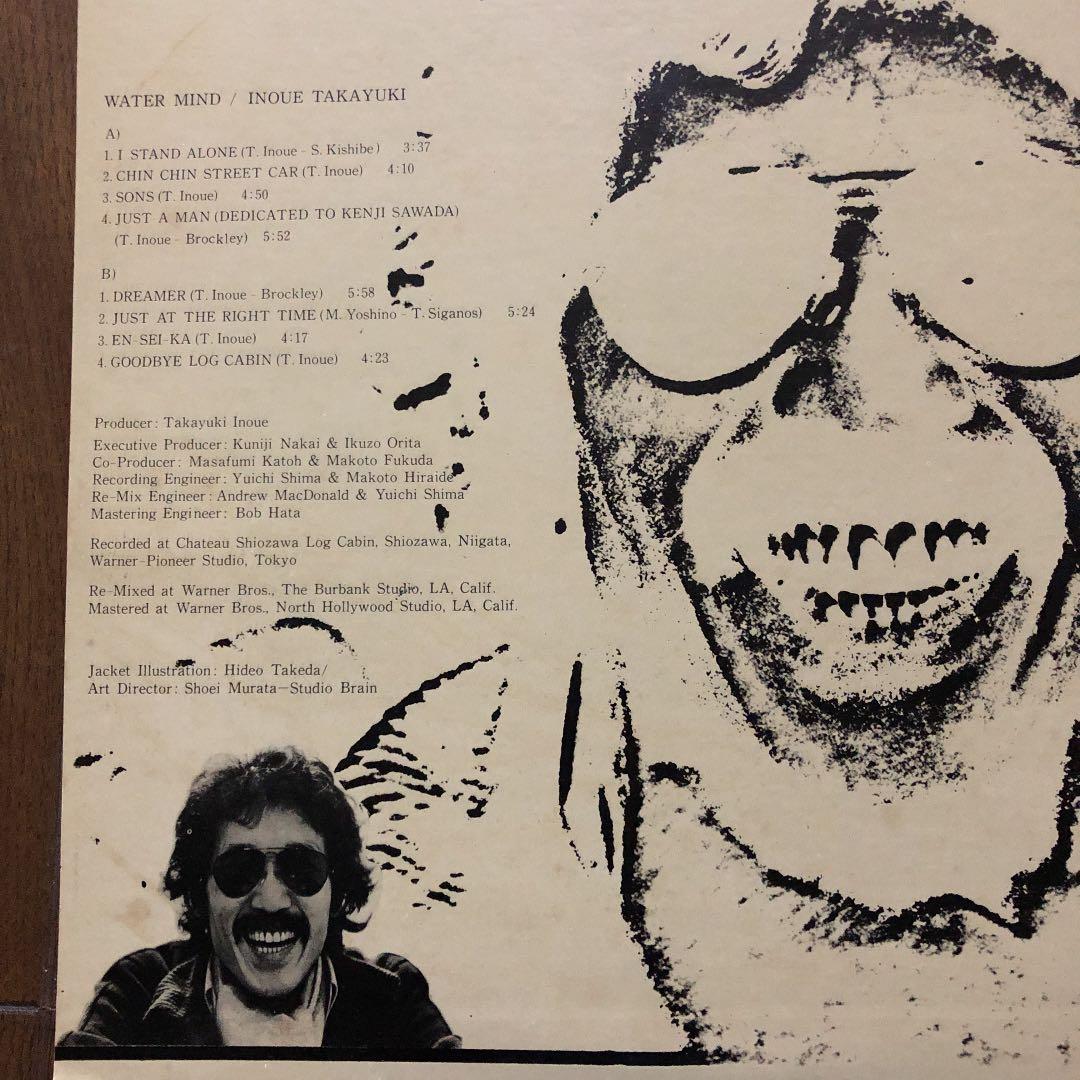 WATER MIND / INOUE TAKAYUKI
A)
1. I STAND ALONE (T. Inoue - S. Kishibe) 3:37
2. CHIN CHIN STREET CAR (T. Inoue) 4:10
3. SONS (T. Inoue) 4:50
4. JUST A MAN (DEDICATED TO KENJI SAWADA)
(T. Inoue - Brockley) 5:52
B)
1. DREAMER (T. Inoue - Brockley) 5:58
2. JUST AT THE RIGHT TIME (M. Yoshino - T. Siganos) 5:24
3. EN-SEI-KA (T. Inoue) 4:17
4. GOODBYE LOG CABIN (T. Inoue) 4:23
Producer: Takayuki Inoue
Executive Producer: Kuniji Nakai & Ikuzo Orita
Co-Producer: Masafumi Katoh & Makoto Fukuda
Recording Engineer: Yuichi Shima & Makoto Hiraide
Re-Mix Engineer: Andrew MacDonald & Yuichi Shima
Mastering Engineer: Bob Hata
Recorded at Chateau Shiozawa Log Cabin, Shiozawa, Niigata,
Warner-Pioneer Studio, Tokyo
Re-Mixed at Warner Bros., The Burbank Studio, LA, Calif.
Mastered at Warner Bros., North Hollywood Studio, LA, Calif.
Jacket Illustration: Hideo Takeda/
Art Director: Shoei Murata—Studio Brain